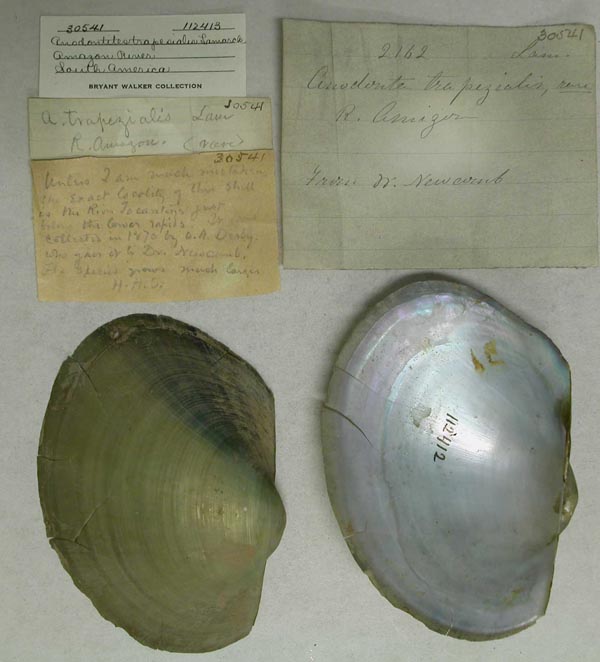 30541 112413
Anodontites trapezialis Lamarck
Amazon River
South America
BRYANT WALKER COLLECTION
30541
A. trapezialis Lam
R. Amazon. (rare)
30541
Unless I am much mistaken
the exact locality of this shell
is the River Tocantins just
the lower rapids. It was
collected in 1870 by O.A. Derby.
who gave it to Dr. Newcomb.
The species grows much larger
H.H.S.
30541
2162 Lam.
Anodonta trapezialis, rare
R. Amazon
From Dr. Newcomb
112412